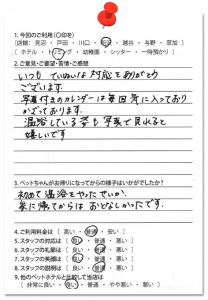 1. 今回のご利用(〇印を)
[店舗: 見沼 ・ 戸田 ・ 川口 ・ ・ 越谷 ・ 与野 ・ 草加 ]
[ ホテル ・ トリミング ・ 幼稚園 ・ シッター ・ 一時預かり ]
2. ご意見・ご要望・苦情・ご感想
いつも ていねいな 対応をありがとう
ございます。
写真付きのカレンダーは毎回 気に入っており
かざっております。
温浴している姿も写真で見れると
嬉しいです
3. ペットちゃんがお帰りになってからの様子はいかがでしたか?
初めて温浴をやったせいか、
家に帰てからは おとなしかったです。
4. ご利用料金は [ 高い ・ 普通 ・ 安い ]
5. スタッフの対応は [ 良い ・ 普通 ・ 悪い ]
6. スタッフの礼節は [ 良い ・ 普通 ・ 悪い ]
7. スタッフの説明は [ 良い ・ 普通 ・ 悪い ]
8. スタッフの笑顔は [ 良い ・ 普通 ・ 悪い ]
9. 他のペットホテルと比較して当店は
[ 非常に良い ・ 良い ・ 普通 ・ やや悪い ・ 悪い ]